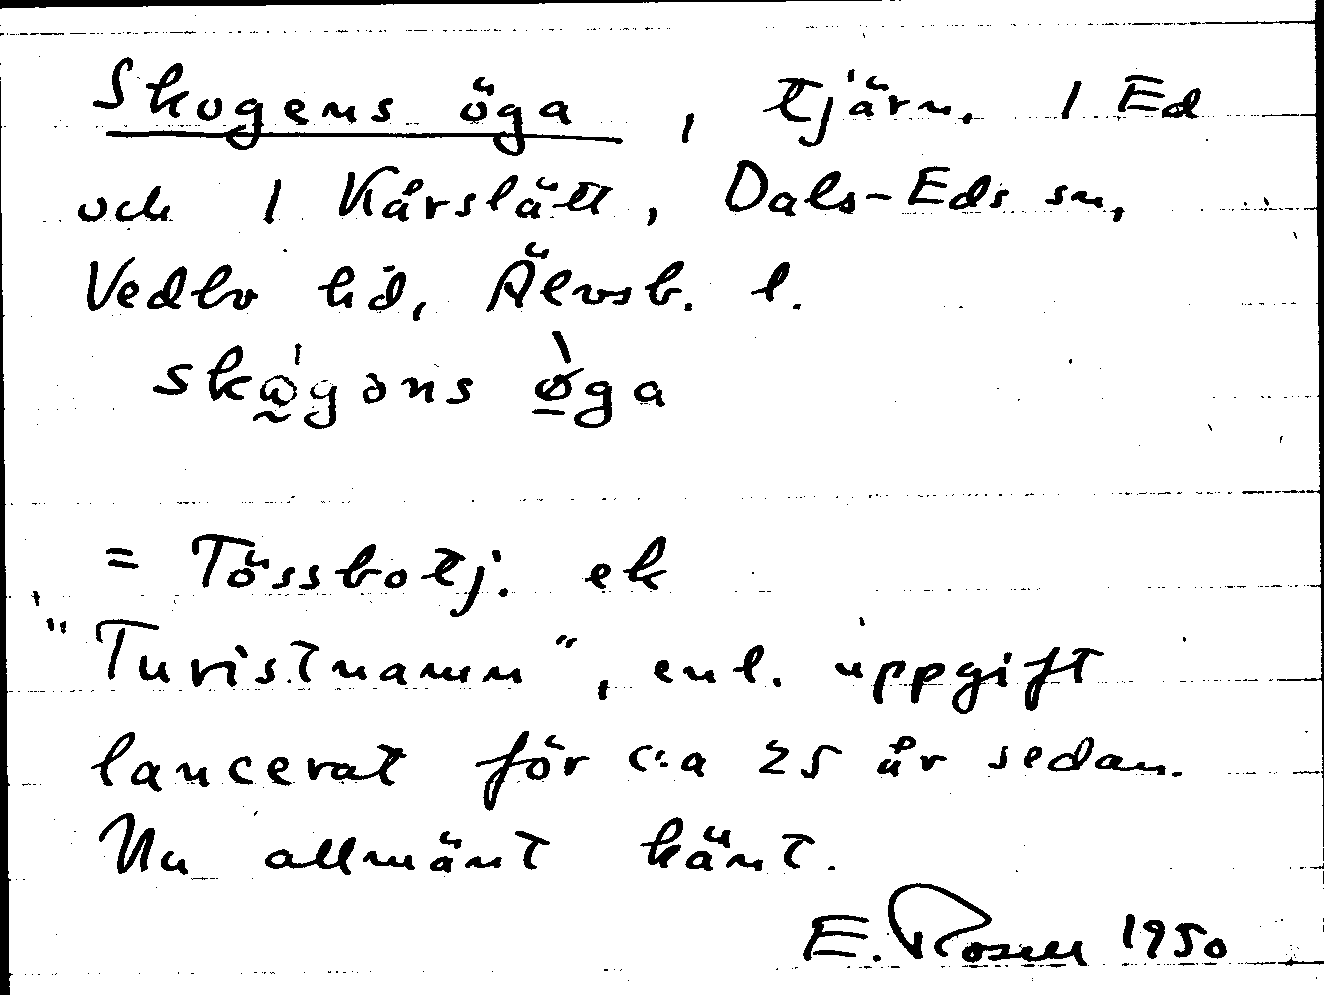 Skogens öga, tjärn. 1 Ed
och 1 Kårslätt, Dals-Eds sn,
Vedbo hd, Älvsb. l.
skǫ̀gəns ø̀ga
= Tössbotj. ek
"Turistnamn", enl. uppgift
lancerat för c:a 25 år sedan.
Nu allmänt känt.
E. Rosell 1950